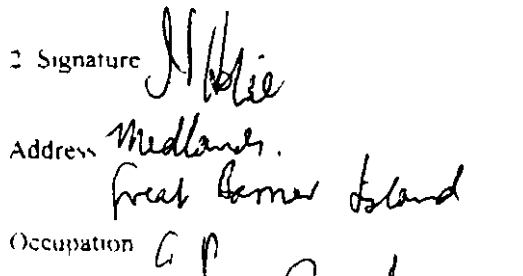 2 Signature
Address Medlands.
Great Barrier Island
Occupation G P